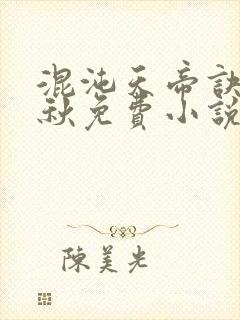 混沌天帝訣
秋免費小說
陳美光